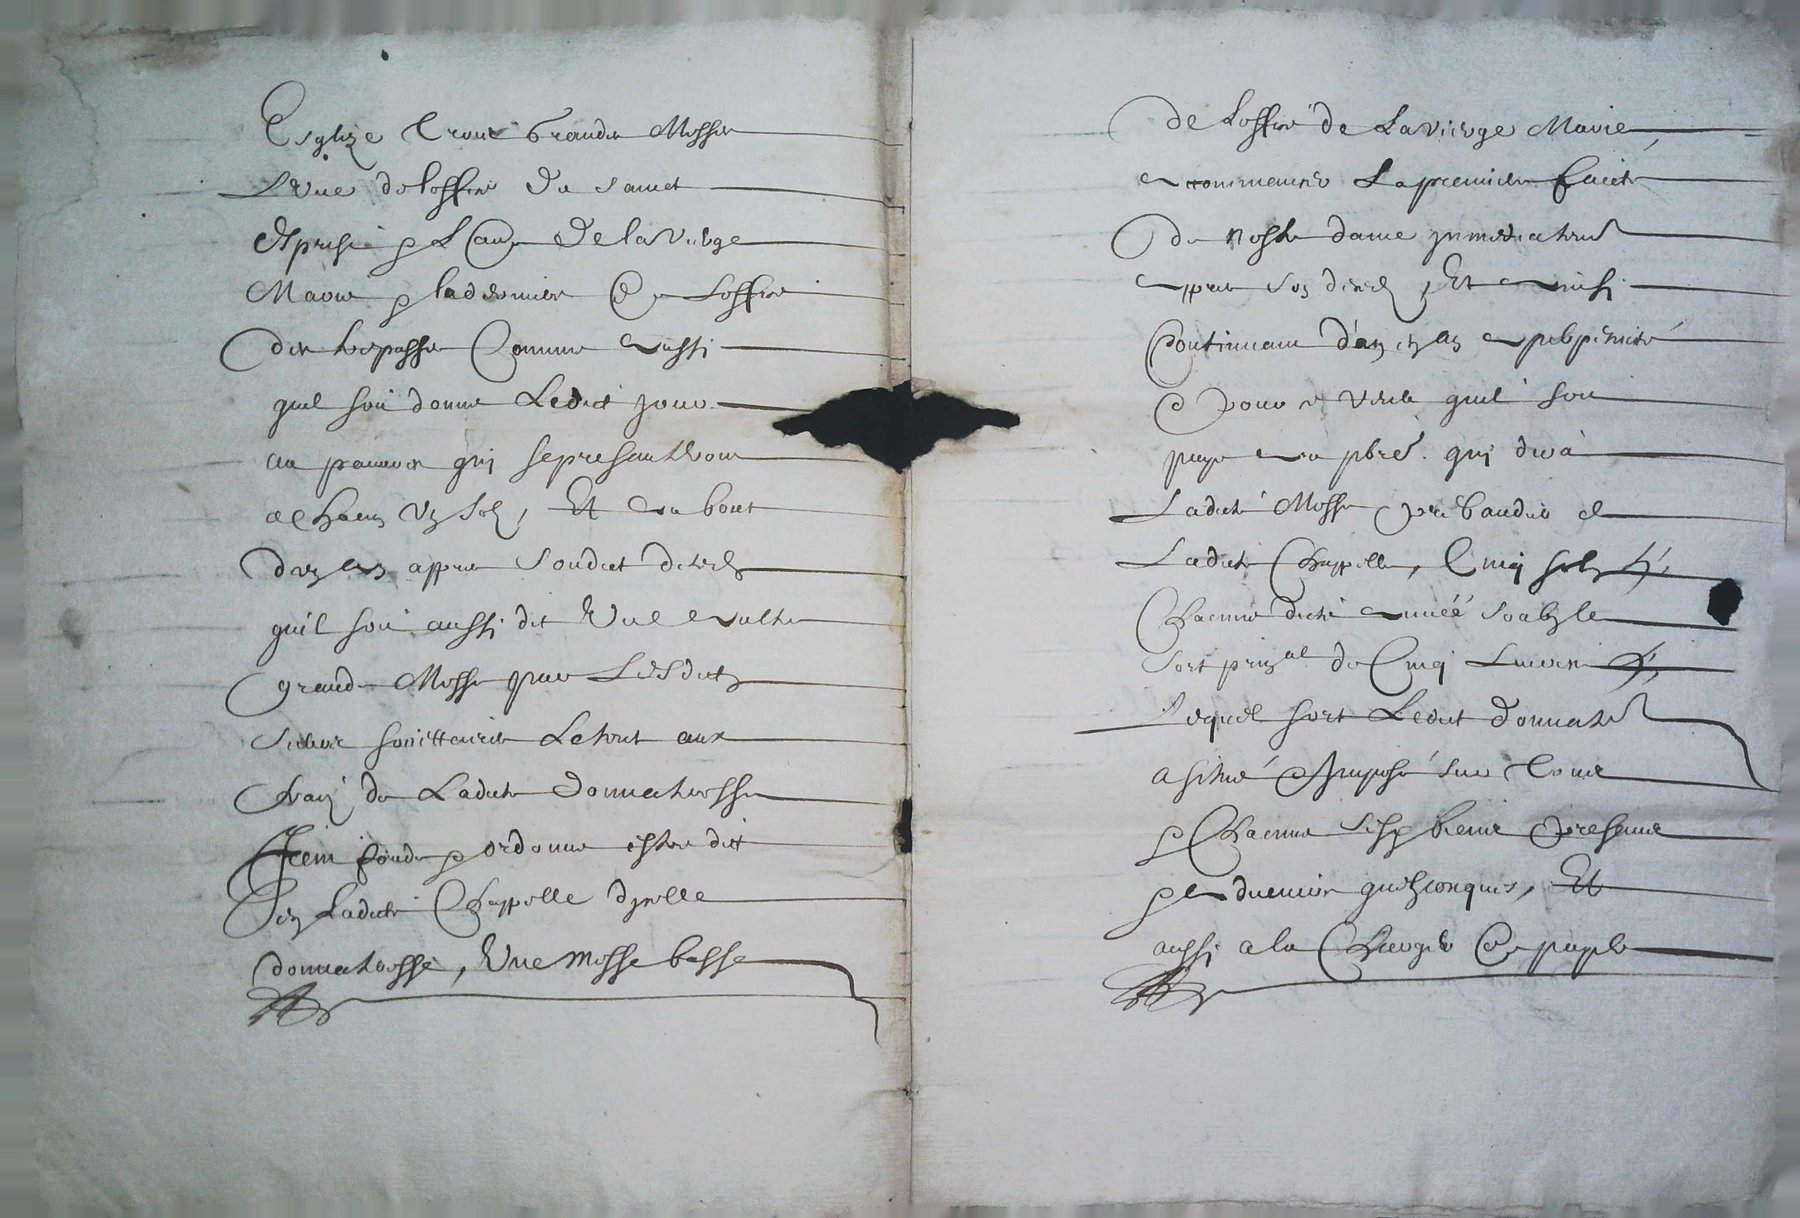 Esglize Trois Grandes Messes
L'une de loffice du sainct
Esprist & L'autre De la Vierge
Marie & la derniere De Loffice
des trepasses Comme aussi
quil soit donné Ledict jour
au pauvres qui se presanteront
a chacun Vng sol, Et au bout
dan apres sondict deces
quil soit aussi dit Une aultre
grande Messe par Lesdictz
sieurs sosiettaires Le tout aux
frais de Ladicte Donnatresse
Item fonde & ordonne estre dict
En Ladicte Chappelle dycelle
donnatresse, Une Messe basse
de Loffice de La Vierge Marie,
a commencer La premiere feste
De Nostre dame
apres son deces, Et ainsi
Continuant d'an en an a perpetuité
Et pour ce Veult quil soit
paye au pbre. qui dira
Ladicte Messe
Ladicte Chappelle, Cinq solz
Chacune dicte année soubz le
sort prinal de Cinq Livres
Lequel sort Ledict donnatr
assitué & Imposé sur Tous
& Chacuns ses biens presens
& advenir quelzconques, Et
aussi a la Charge De payer